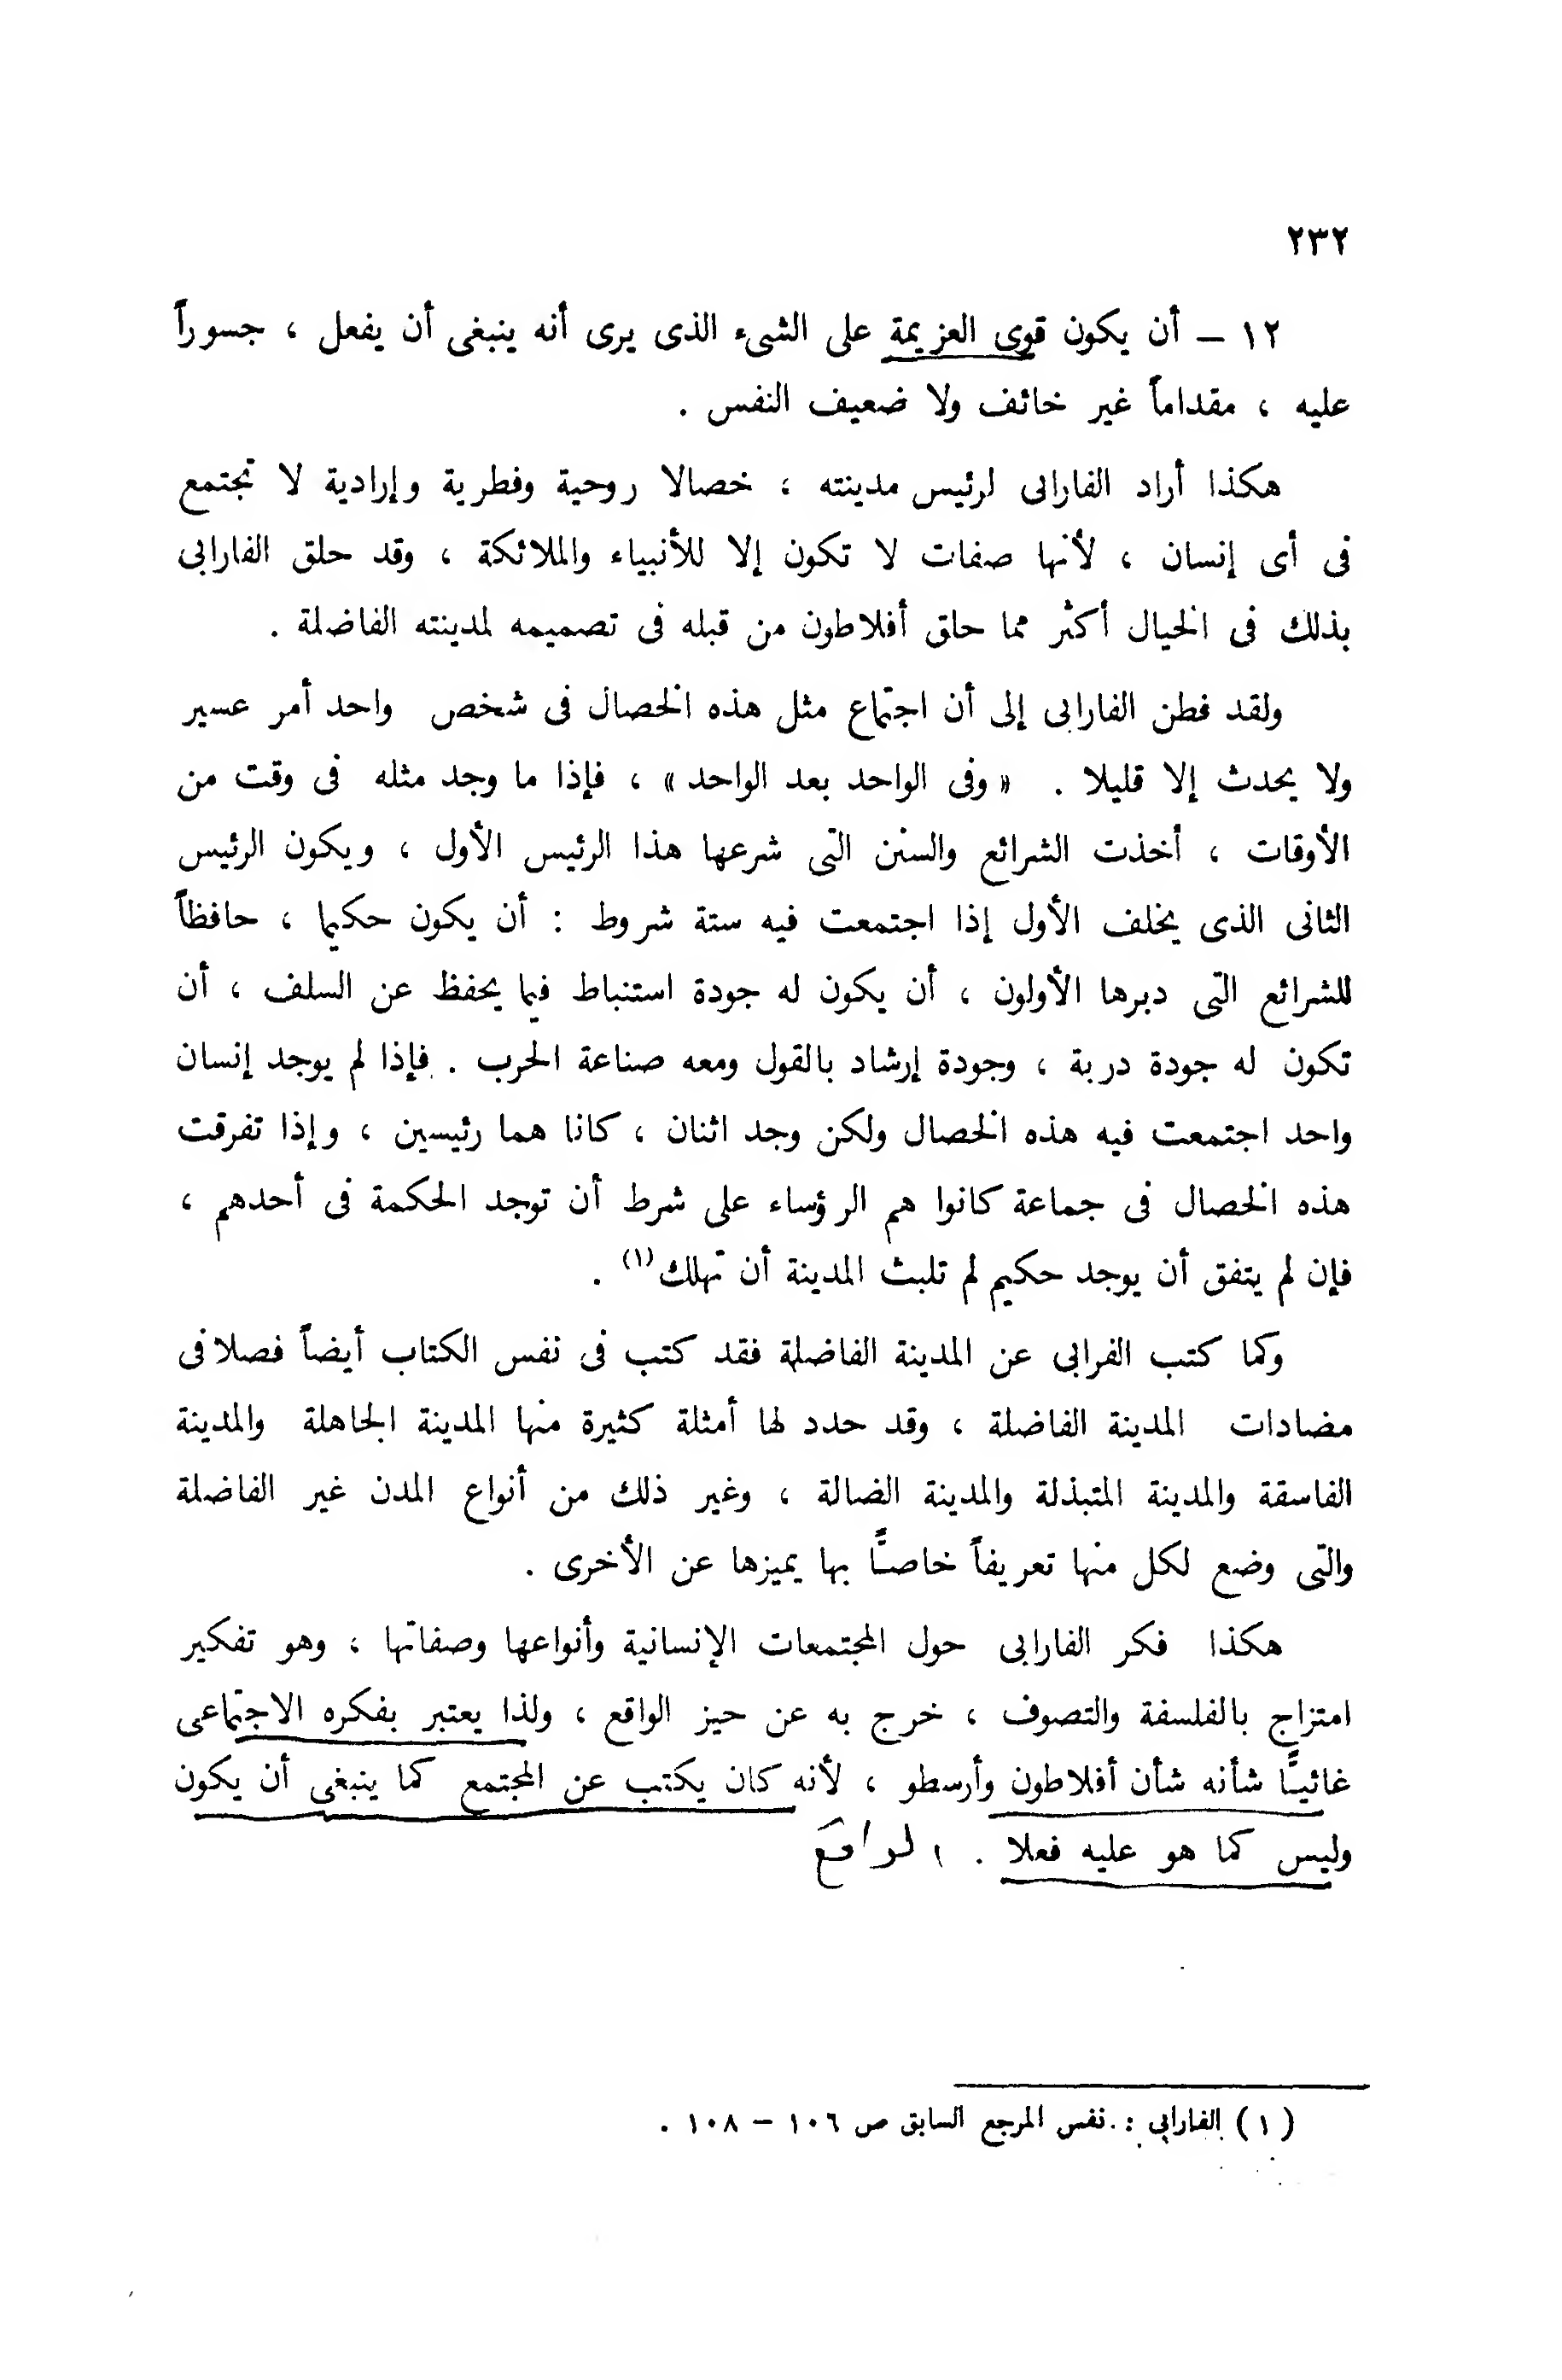 ٢٣٢
١٢ – أن يكون قوى العزيمة على الشىء الذى يرى أنه ينبغى أن يفعل ، جسوراً
عليه ، مقداماً غير خائف ولا ضعيف النفس .
هكذا أراد الفارابى لرئيس مدينته ، خصالا روحية وفطرية وإرادية لا تجتمع
فى أى إنسان ، لأنها صفات لا تكون إلا للأنبياء والملائكة ، وقد حلق الفارابى
بذلك فى الخيال أكثر مما حلق أفلاطون من قبله فى تصميمه لمدينته الفاضلة .
ولقد فطن الفارابى إلى أن اجتماع مثل هذه الخصال فى شخص واحد أمر عسير
ولا يحدث إلا قليلا . « وفى الواحد بعد الواحد » ، فإذا ما وجد مثله فى وقت من
الأوقات ، أخذت الشرائع والسنن التى شرعها هذا الرئيس الأول ، ويكون الرئيس
الثانى الذى يخلف الأول إذا اجتمعت فيه ستة شروط : أن يكون حكيما ، حافظاً
للشرائع التى دبرها الأولون ، أن يكون له جودة استنباط فيما يحفظ عن السلف ، أن
تكون له جودة دربة ، وجودة إرشاد بالقول ومعه صناعة الحرب . فإذا لم يوجد إنسان
واحد اجتمعت فيه هذه الخصال ولكن وجد اثنان ، كانا هما رئيسين ، وإذا تفرقت
هذه الخصال فى جماعة كانوا هم الرؤساء على شرط أن توجد الحكمة فى أحدهم ،
فإن لم يتفق أن يوجد حكيم لم تلبث المدينة أن تهلك(١) .
وكما كتب الفرابى عن المدينة الفاضلة فقد كتب فى نفس الكتاب أيضاً فصلا فى
مضادات المدينة الفاضلة ، وقد حدد لها أمثلة كثيرة منها المدينة الجاهلة والمدينة
الفاسقة والمدينة المتبذلة والمدينة الضالة ، وغير ذلك من أنواع المدن غير الفاضلة
والتى وضع لكل منها تعريفاً خاصًّا بها يميزها عن الأخرى .
هكذا فكر الفارابى حول المجتمعات الإنسانية وأنواعها وصفاتها ، وهو تفكير
امتزاج بالفلسفة والتصوف ، خرج به عن حيز الواقع ، ولذا يعتبر بفكره الاجتماعى
غائيًّا شأنه شأن أفلاطون وأرسطو ، لأنه كان يكتب عن المجتمع كما ينبغى أن يكون
وليس كما هو عليه فعلا . الواقع
(١) الفارابى : نفس المرجع السابق ص ١٠٦ – ١٠٨ .